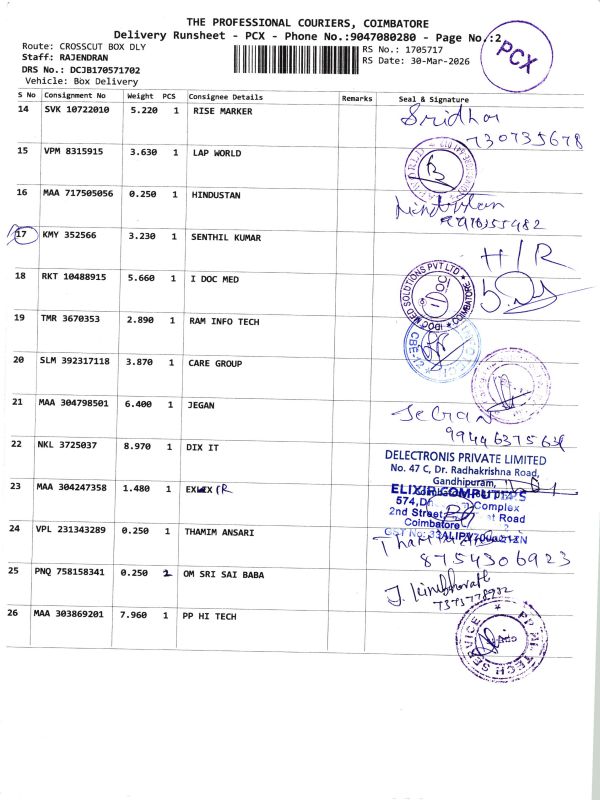 THE PROFESSIONAL COURIERS, COIMBATORE
Delivery Runsheet - PCX - Phone No.:9047080280 - Page No.:2
PCX
Route: CROSSCUT BOX DLY
Staff: RAJENDRAN
DRS No.: DCJB170571702
Vehicle: Box Delivery
RS No.: 1705717
RS Date: 30-Mar-2026
S No Consignment No Weight PCS Consignee Details Remarks Seal & Signature
14 SVK 10722010 5.220 1 RISE MARKER Sridhar
730735678
15 VPM 8315915 3.630 1 LAP WORLD
16 MAA 717505056 0.250 1 HINDUSTAN
17 KMY 352566 3.230 1 SENTHIL KUMAR H/R
18 RKT 10488915 5.660 1 I DOC MED
IDOC MED SOLUTIONS PVT LTD * COIMBATORE *
19 TMR 3670353 2.890 1 RAM INFO TECH
CBE-12
20 SLM 392317118 3.870 1 CARE GROUP
21 MAA 304798501 6.400 1 JEGAN
22 NKL 3725037 8.970 1 DIX IT
DELECTRONIS PRIVATE LIMITED
No. 47 C, Dr. Radhakrishna Road,
Gandhipuram,
23 MAA 304247358 1.480 1
ELIXIR COMPUTERS
574, Complex
2nd Street Road
Coimbatore
24 VPL 231343289 0.250 1 THAMIM ANSARI
8754306923
25 PNQ 758158341 0.250 2 OM SRI SAI BABA
26 MAA 303869201 7.960 1 PP HI TECH
PP HI-TECH SERVICE